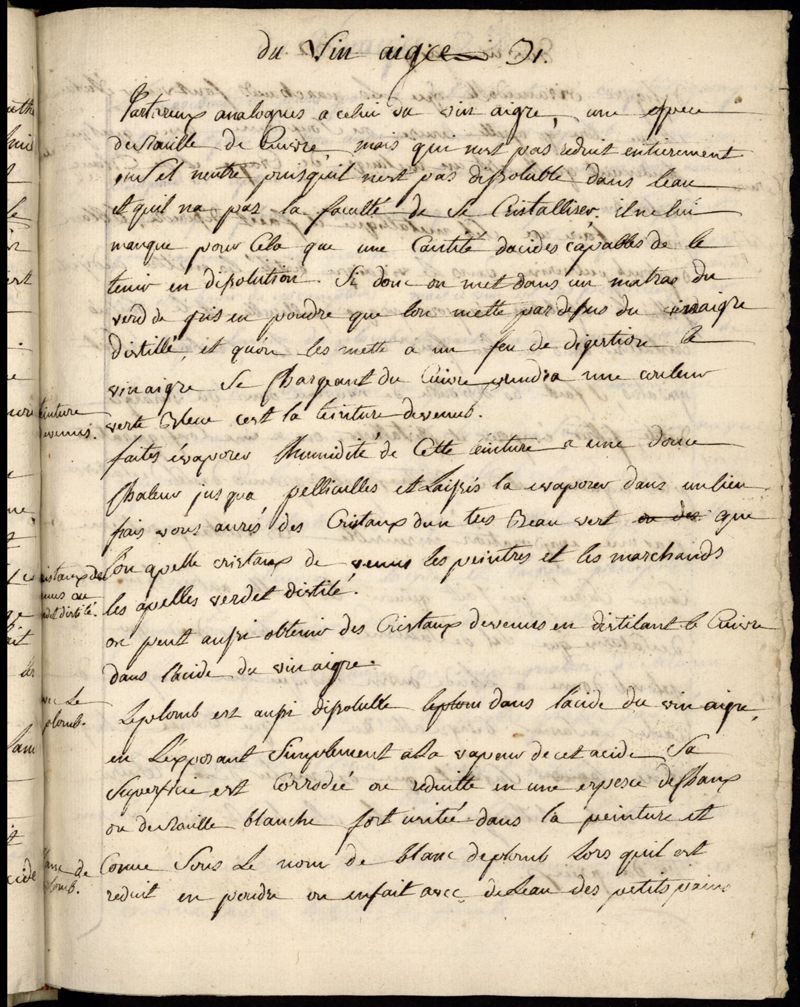 du Vin aigre 31.
Tartreux analogues a celui du vin aigre, une espece
de Raille de Cuivre, mais qui n'est pas reduit entierement
en Sel neutre puisquil nest pas dissoluble dans leau
et quil na pas la faculté de Se Cristalliser. il ne lui
manque pour Cela que une Cantité dacides capables de le
tenir en disolution. Si donc on met dans un matras du
verd de gris en poudre que lon mette par dessus du vinaigre
distillé, et quon les mette a un feu de digestion le
vinaigre Se Chargeant du Cuivre viendra une couleur
teinture de venus.
verte Bleue cest la teinture de venus.
faites évaporer lhumidité de Cette teinture a une douce
Chaleur jusqua pellicules et Laissés la evaporer dans un lieu
frais vous aurés des Cristaux dun tres Beau vert ou des que
cristaux de venus ou verdet distilé.
lon apelle cristaux de venus les peintres et les marchands
les apelles verdet distilé.
on peut aussi obtenir des Cristaux de venus en distilant le Cuivre
dans lacide du vin aigre.
avec Le plomb.
Le plomb est aussi disoluble le plom dans lacide du vin aigre,
en L'exposant Simplement a La vapeur de cet acide, Sa
Superficie est Corrodée ou reduitte en une espece de Chaux
ou de Raille blanche fort usitée dans la peinture et
blanc de plomb.
Connue Sous Le nom de blanc de plomb Lors quil est
reduit en poudre on en fait avec de Leau des petits pains